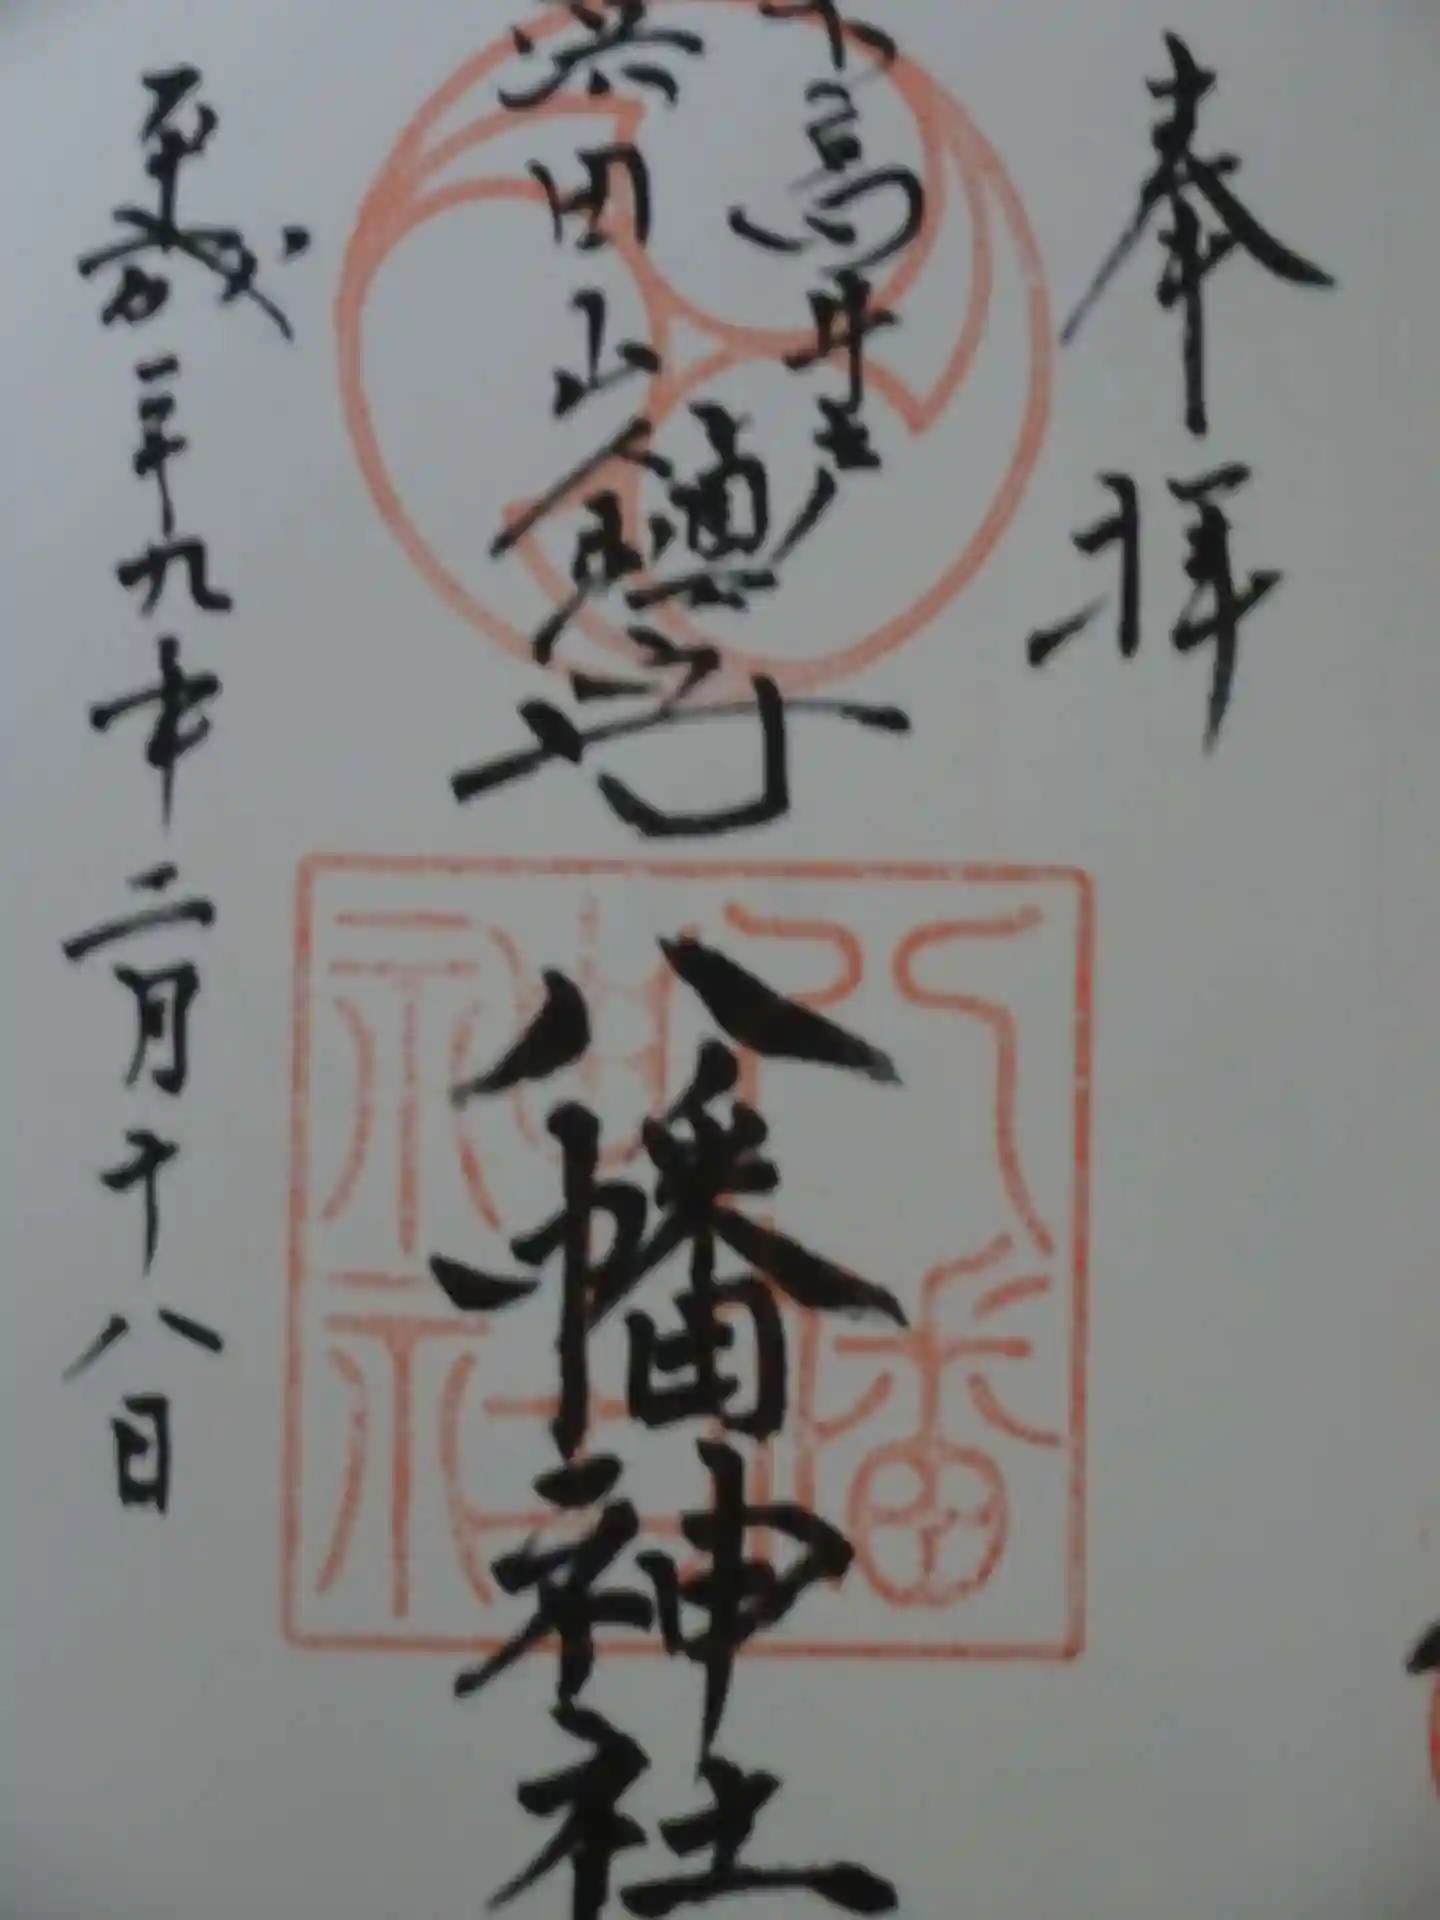 奉拝
下高井戸
浜田山
鎮守
八幡神社
八幡
神社
平成二十九年二月十八日